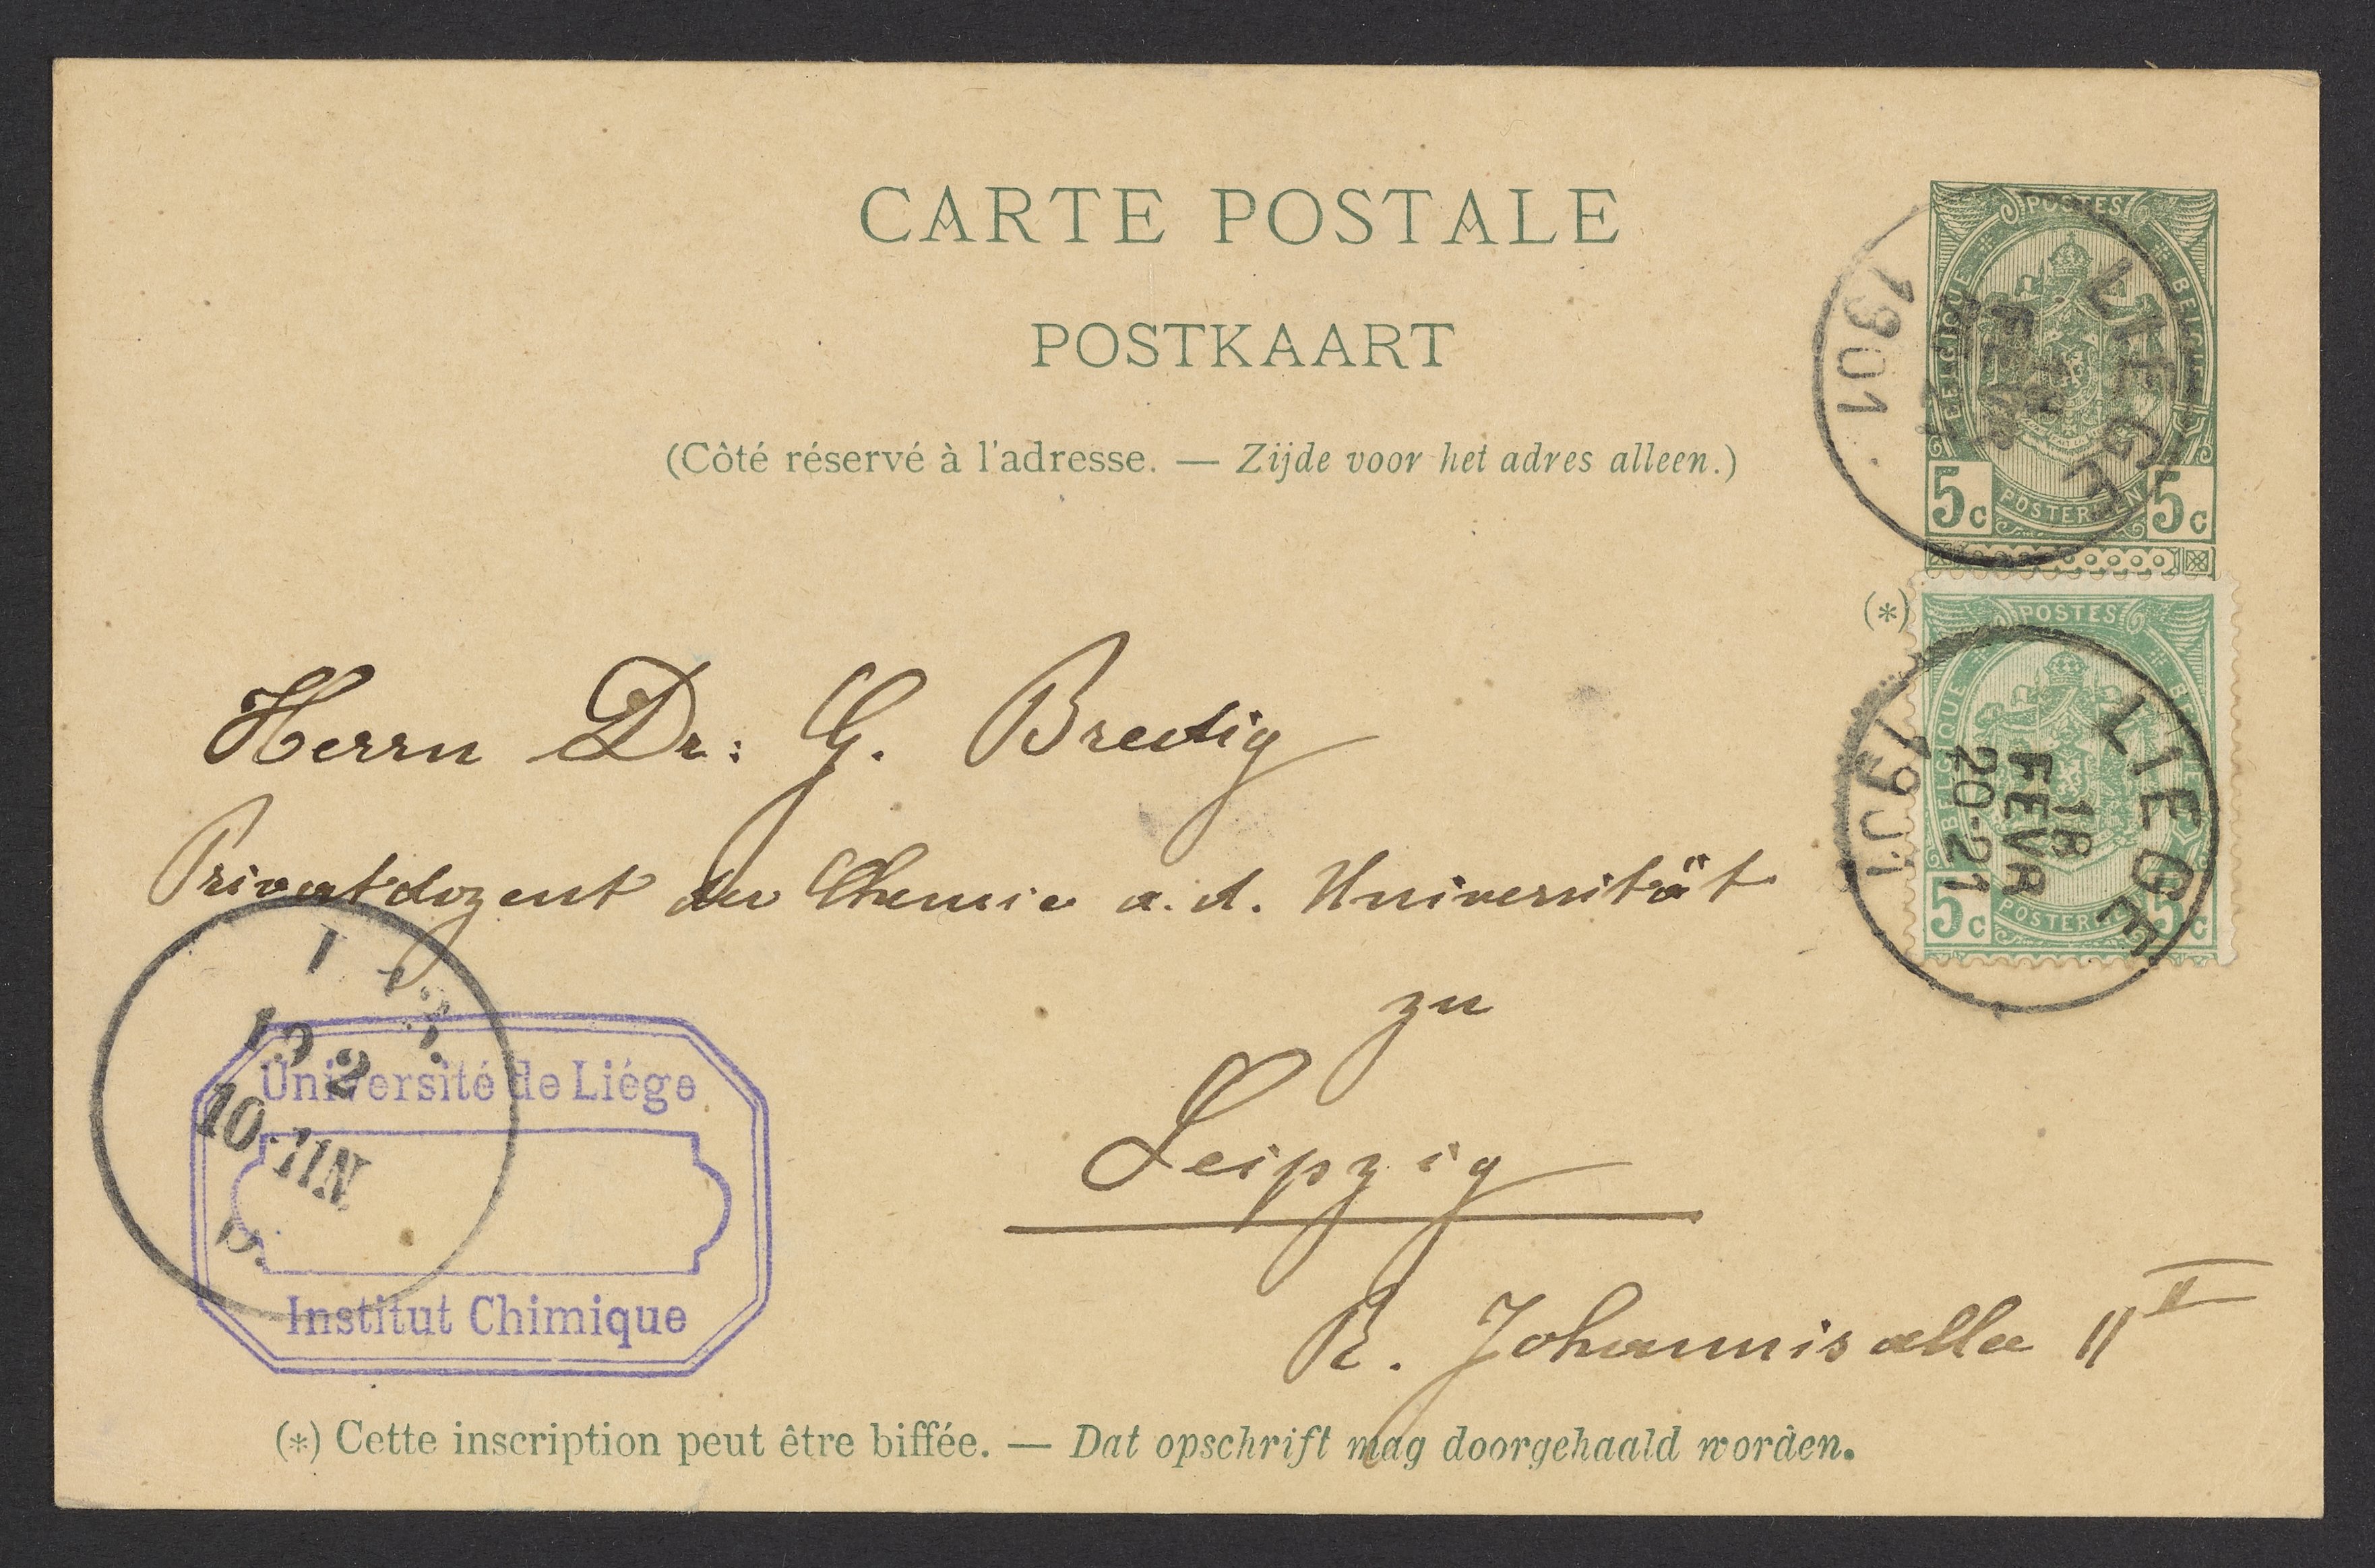 CARTE POSTALE
POSTKAART
(Côté réservé à l'adresse. — Zijde voor het adres alleen.)
POSTES
BELGIQUE
BELGIË
POSTERIJEN
5c 5c
LIEGE
18
FEVR
1901
(*)
POSTES
BELGIQUE
5c 5c
LIEGE
18
FEVR
20-21
1901
Herrn Dr: G. Bredig
Privatdozent der Chemie a. d. Universität
zu
Leipzig
R. Johannisallee 11 II
10-11N
Université de Liége
Institut Chimique
(*) Cette inscription peut être biffée. — Dat opschrift mag doorgehaald worden.